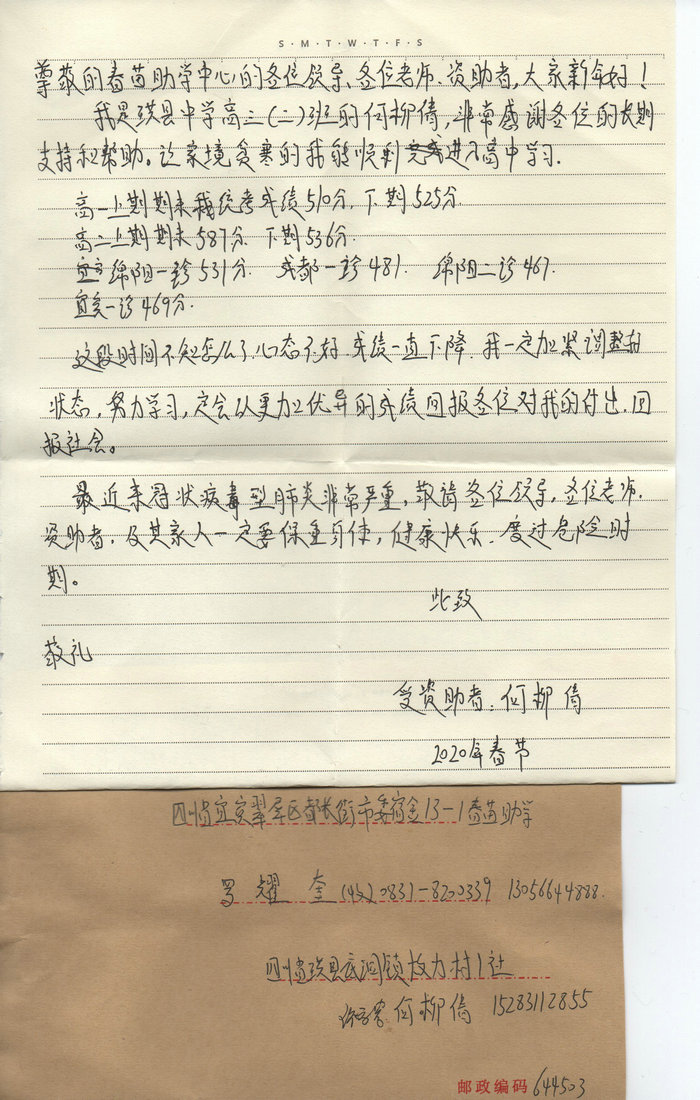 S·M·T·W·T·F·S
尊敬的春苗助学中心的各位领导、各位老师、资助者,大家新年好!
我是珙县中学高三(二)班的何柳倩,非常感谢各位的长期
支持和帮助。让家境贫寒的我能顺利进入高中学习.
高一上期期末统考成绩510分,下期525分.
高二上期期末587分 下期536分.
绵阳一诊531分 成都一诊481. 绵阳二诊467.
宜宾一诊469分.
这段时间不知怎么了,心态不好.成绩一直下降.我一定加紧调整好
状态,努力学习,定会以更加优异的成绩回报各位对我的付出.回
报社会。
最近来冠状病毒型肺炎非常严重,敬请各位领导,各位老师.
资助者.及其家人一定要保重身体,健康快乐.度过危险时
期。
此致
敬礼
受资助者:何柳倩
2020年春节
四川省宜宾翠屏区都长街市委宿舍13-1春苗助学
罗耀奎(收)0831-8200339 13056644888.
四川省珙县底洞镇 村1社
何柳倩 15283112855
邮政编码 644503